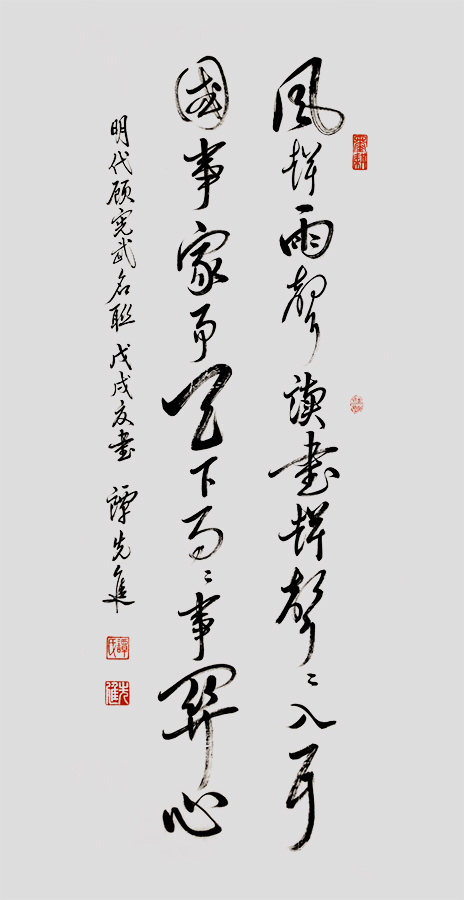 風聲雨聲读書聲聲〻入耳
國事家事天下事〻事關心
明代顾宪武名聯 戊戌夏書 譚先進